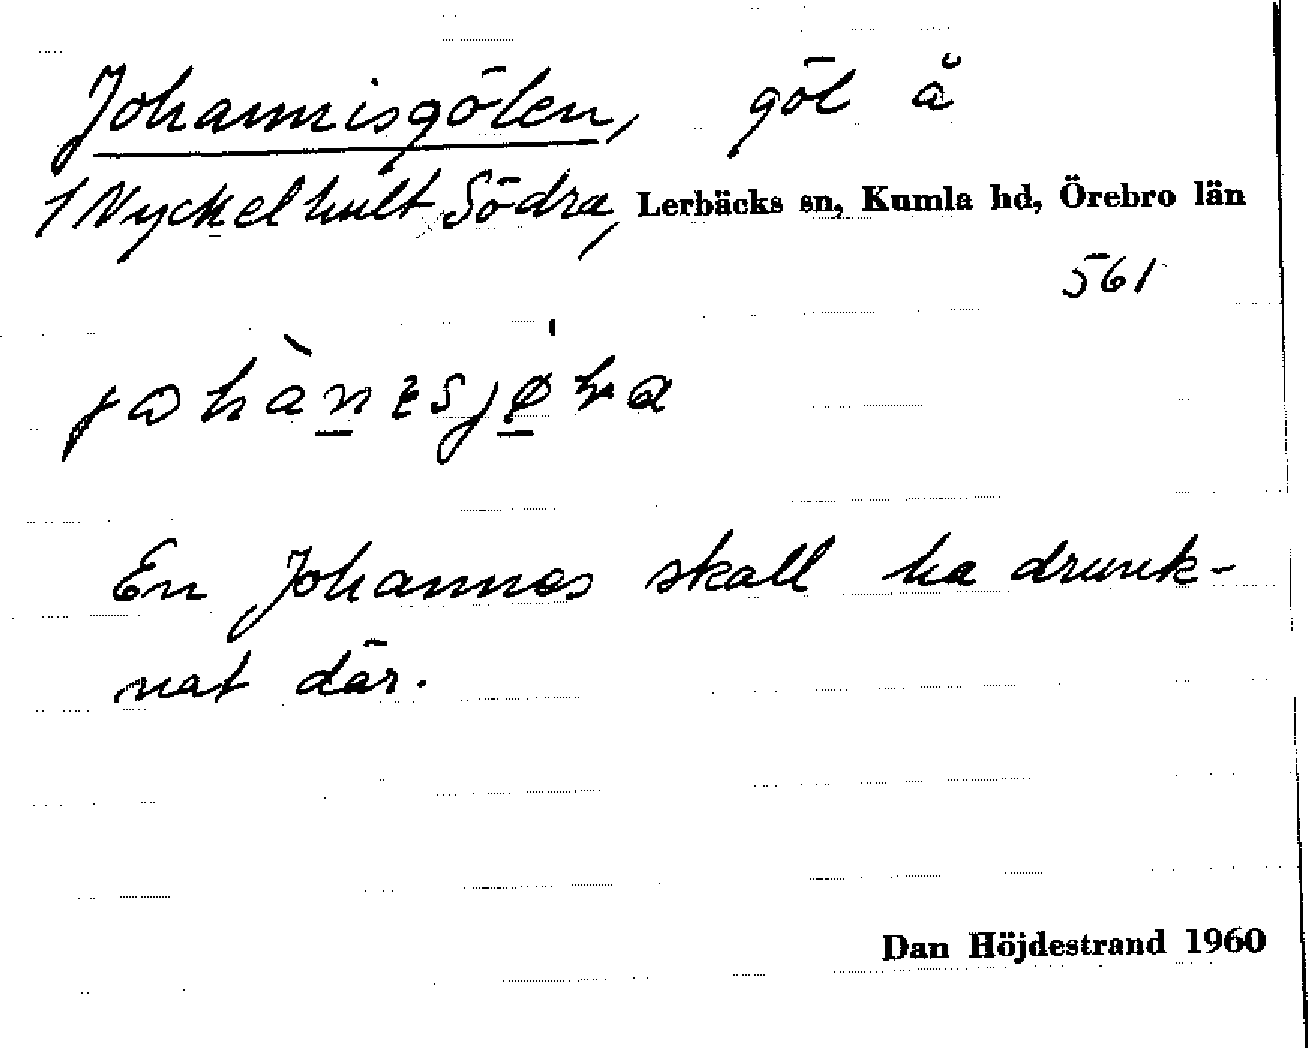 Johannisgölen, göl å
1 Nyckelhult Södra, Lerbäcks sn, Kumla hd, Örebro län
561
En Johannes skall ha drunk-
nat där.
Dan Höjdestrand 1960